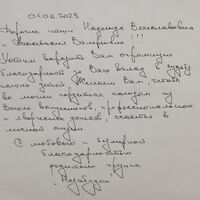 01.06.2023
Дорогие наши Надежда Вячеславовна
и Валерьевна!!!
Хотим выразить Вам огромную
благодарность за Ваш вклад в судьбу
наших детей. Желаем Вам, чтобы
вы могли гордиться каждым из
Ваших воспитанников, профессиональных
и творческих успехов, счастья в
личной жизни.
С любовью и безмерной
благодарностью
родители группы
"Незабудки"